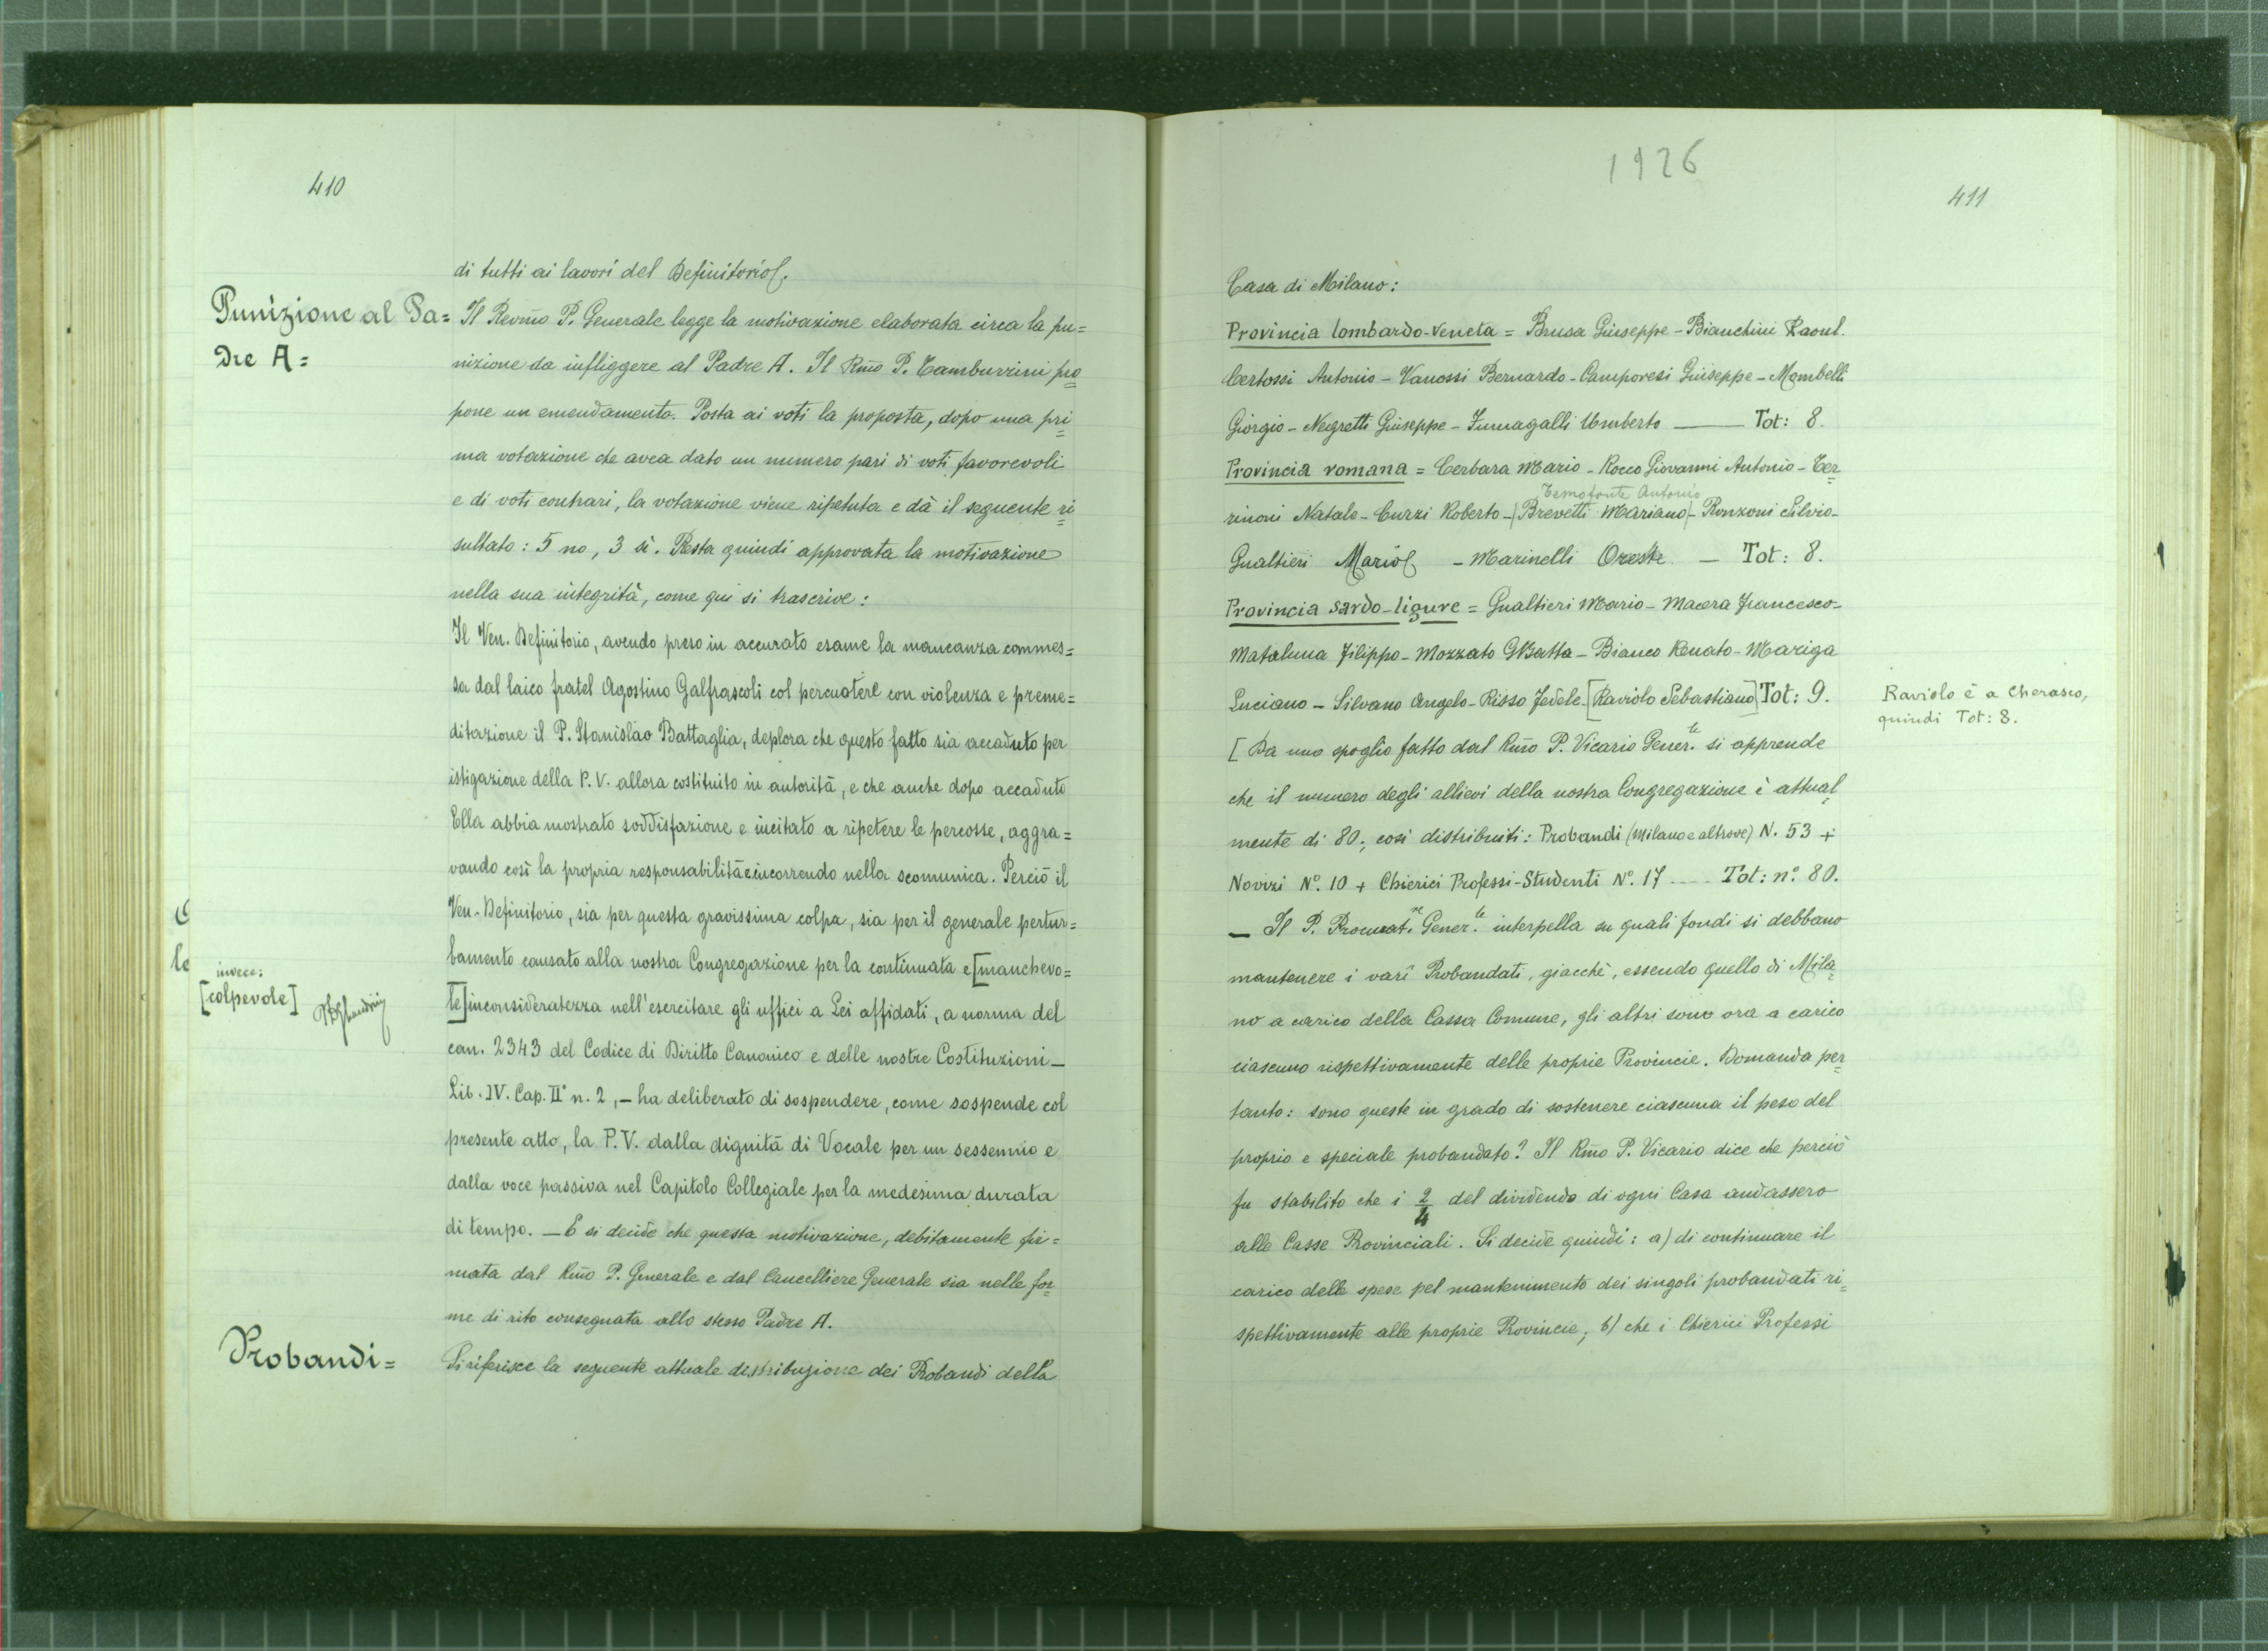 410
di tutti ai lavori del Definitorio.
Punizione al Pa=
dre A=
Il Revm̃o P. Generale legge la motivazione elaborata circa la pu=
nizione da infliggere al Padre A. Il Rm̃o P. Tamburrini pro=
pone un emendamento. Posta ai voti la proposta, dopo una pri=
ma votazione che avea dato un numero pari di voti favorevoli
e di voti contrari, la votazione viene ripetuta e dà il seguente ri=
sultato: 5 no, 3 sì. Resta quindi approvata la motivazione
nella sua integrità, come qui si trascrive:
Il Ven. Definitorio, avendo preso in accurato esame la mancanza commes=
sa dal laico fratel Agostino Galfrascoli col percuotere con violenza e preme=
ditazione il P. Stanislao Battaglia, deplora che questo fatto sia accaduto per
istigazione della P. V. allora costituito in autorità, e che anche dopo accaduto
Ella abbia mostrato soddisfazione e incitato a ripetere le percosse, aggra=
vando così la propria responsabilità e incorrendo nella scomunica. Perciò il
Ven. Definitorio, sia per questa gravissima colpa, sia per il generale pertur=
bamento causato alla nostra Congregazione per la continuata e [manchevo=
le] inconsideratezza nell'esercitare gli uffici a Lei affidati, a norma del
invece:
[colpevole]
can. 2343 del Codice di Diritto Canonico e delle nostre Costituzioni _
Lib. IV. Cap. II° n. 2, _ ha deliberato di sospendere, come sospende col
presente atto, la P. V. dalla dignità di Vocale per un sessennio e
dalla voce passiva nel Capitolo Collegiale per la medesima durata
di tempo. _ E si decide che questa motivazione, debitamente fir=
mata dal Rm̃o P. Generale e dal Cancelliere Generale sia nelle for=
me di rito consegnata allo stesso Padre A.
Probandi=
Si riferisce la seguente attuale distribuzione dei Probandi della
1926
411
Casa di Milano:
Provincia lombardo-veneta = Brusa Giuseppe - Bianchini Raoul.
Certossi Antonio - Vanossi Bernardo - Camporesi Giuseppe - Mombelli
Giorgio - Negretti Giuseppe - Fumagalli Umberto ___ Tot: 8.
Provincia romana = Cerbara Mario - Rocco Giovanni Antonio - Ter=
Temofonte Antonio
rinoni Natale - Curzi Roberto - (Brevetti Mariano) - Ronzoni Silvio -
Gualtieri Mario - Marinelli Oreste. _ Tot: 8.
Provincia sardo-ligure = Gualtieri Mario - Macera Francesco -
Mataluna Filippo - Mozzato GBatta - Bianco Renato - Mariga
Luciano - Silvano Angelo - Risso Fedele - [Raviolo Sebastiano] Tot: 9.
Raviolo è a Cherasco,
quindi Tot: 8.
[Da uno spoglio fatto dal Rm̃o P. Vicario Gener.le si apprende
che il numero degli allievi della nostra Congregazione è attual=
mente di 80; così distribuiti: Probandi (Milano e altrove) N. 53 +
Novizi N°. 10 + Chierici Professi-Studenti N°. 17 ___ Tot: n°. 80.
_ Il P. Procurat.re Gener.le interpella su quali fondi si debbano
mantenere i varî Probandati, giacchè, essendo quello di Mila=
no a carico della Cassa Comune, gli altri sono ora a carico
ciascuno rispettivamente delle proprie Provincie. Domanda per=
tanto: sono queste in grado di sostenere ciascuna il peso del
proprio e speciale probandato? Il Rm̃o P. Vicario dice che perciò
fu stabilito che i 2/4 del dividendo di ogni Casa andassero
alle Casse Provinciali. Si decide quindi: a) di continuare il
carico delle spese pel mantenimento dei singoli probandati ri=
spettivamente alle proprie Provincie; b) che i Chierici Professi